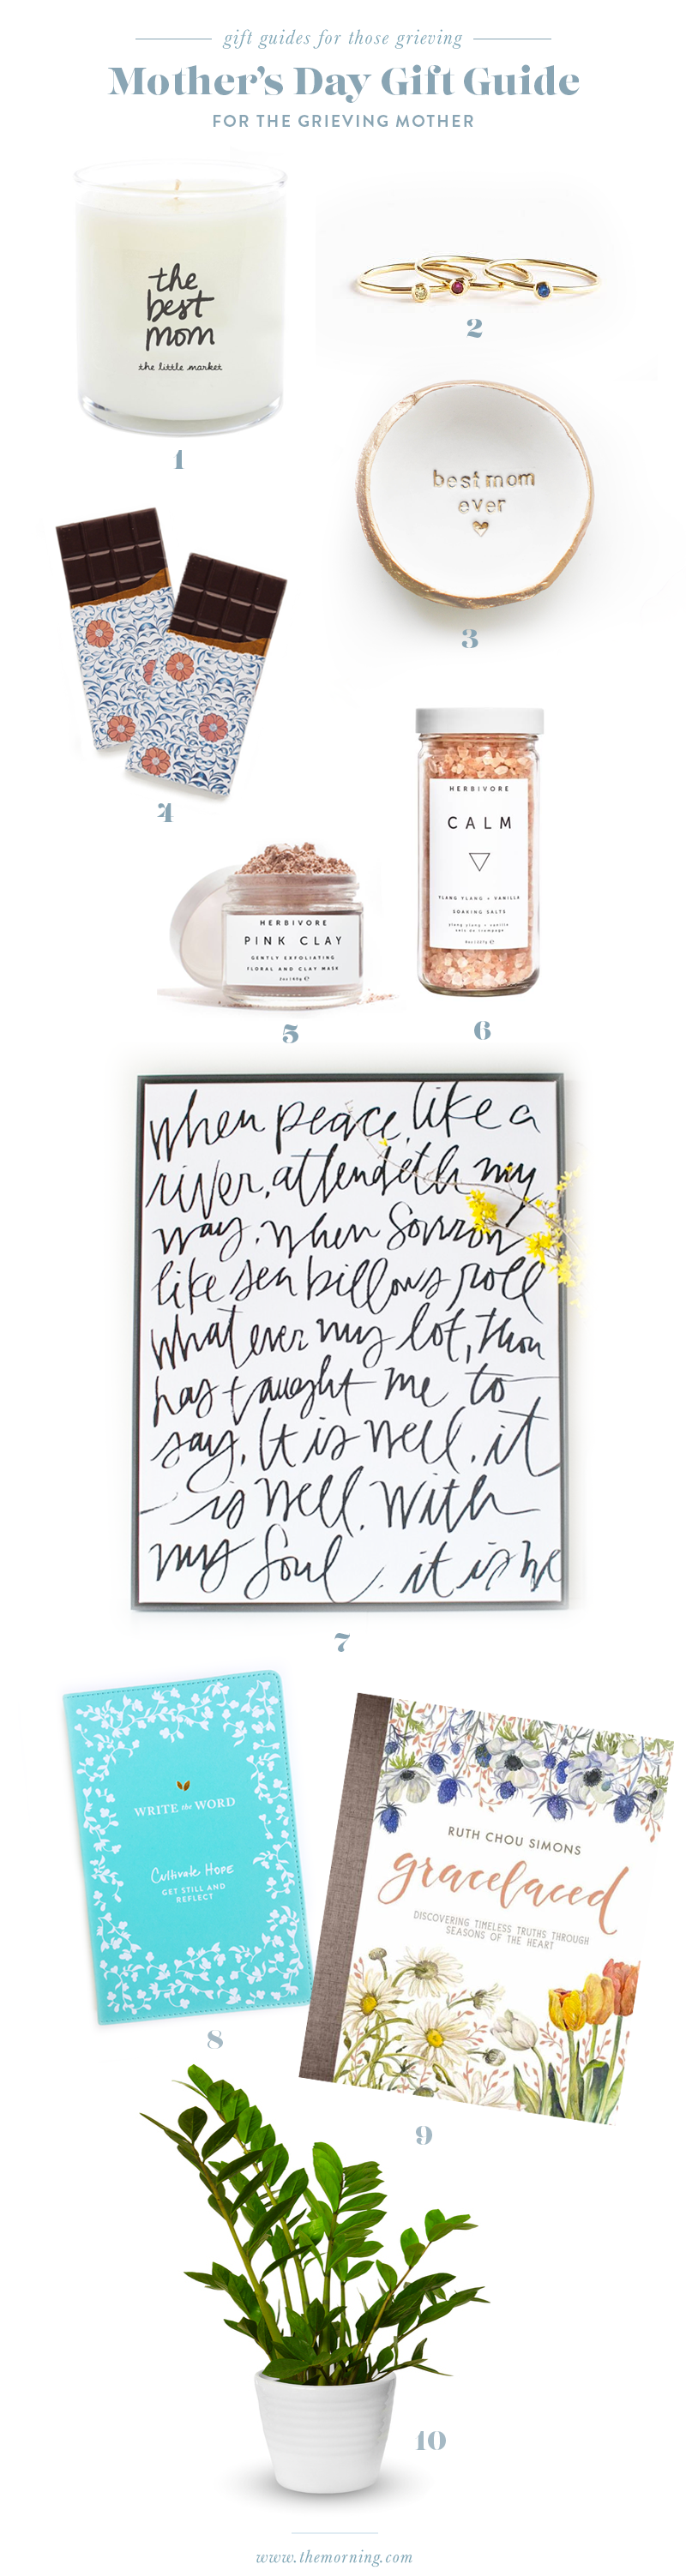 gift guides for those grieving
Mother's Day Gift Guide
FOR THE GRIEVING MOTHER
the
best
mom
the little market
1
2
best mom
ever
3
4
HERBIVORE
CALM
YLANG YLANG + VANILLA
SOAKING SALTS
ylang ylang + vanille
sels de trempage
8oz/227g ℮
HERBIVORE
PINK CLAY
GENTLY EXFOLIATING
FLORAL AND CLAY MASK
2oz/60g ℮
5
6
when peace, like a
river, attendeth my
way, when sorrow
like sea billows roll
whatever my lot, thou
has taught me to
say, It is well, it
is well, with
my soul. it is we
7
WRITE the WORD
Cultivate Hope
GET STILL AND
REFLECT
8
RUTH CHOU SIMONS
gracelaced
DISCOVERING TIMELESS TRUTHS THROUGH
SEASONS OF THE HEART
9
10
www.themorning.com